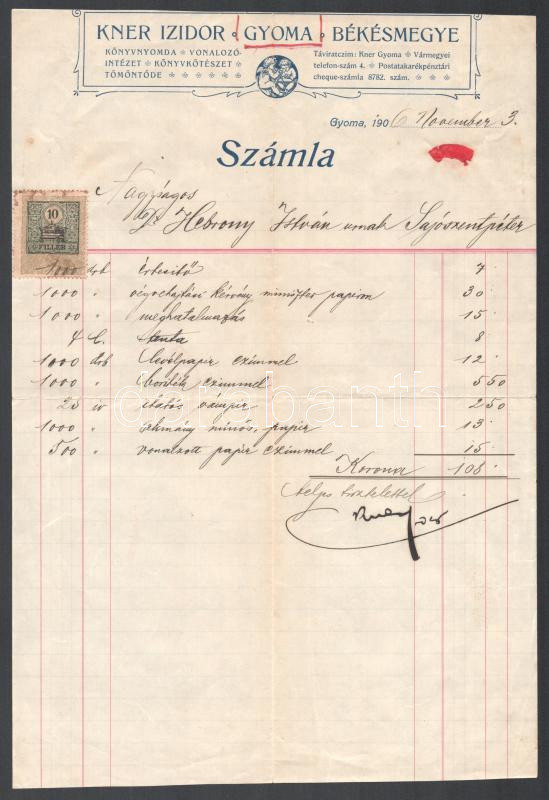 KNER IZIDOR GYOMA BÉKÉSMEGYE
KÖNYVNYOMDA VONALOZÓ-
INTÉZET KÖNYVKÖTÉSZET
TÖMÖNTÖDE
Táviratczim: Kner Gyoma Vármegyei
telefon-szám 4. Postatakarékpénztári
cheque-számla 8782. szám.
Gyoma, 1906 November 3.
Számla
Nagyságos
Dr Hebrony István urnak Sajószentpéter
10
FILLÉR
1000 drb értesitő 7
1000 " végrehajtási kérvény minister papiron 30
1000 " meghatalmazás 15
4 l. tenta 8
1000 drb levélpapir czimmel 12
1000 " boriték czimmel 5 50
25 iv itatós 2 50
1000 " okmány minős. papir 13
500 " vonalzott papir czimmel 15
Korona 108
teljes tisztelettel